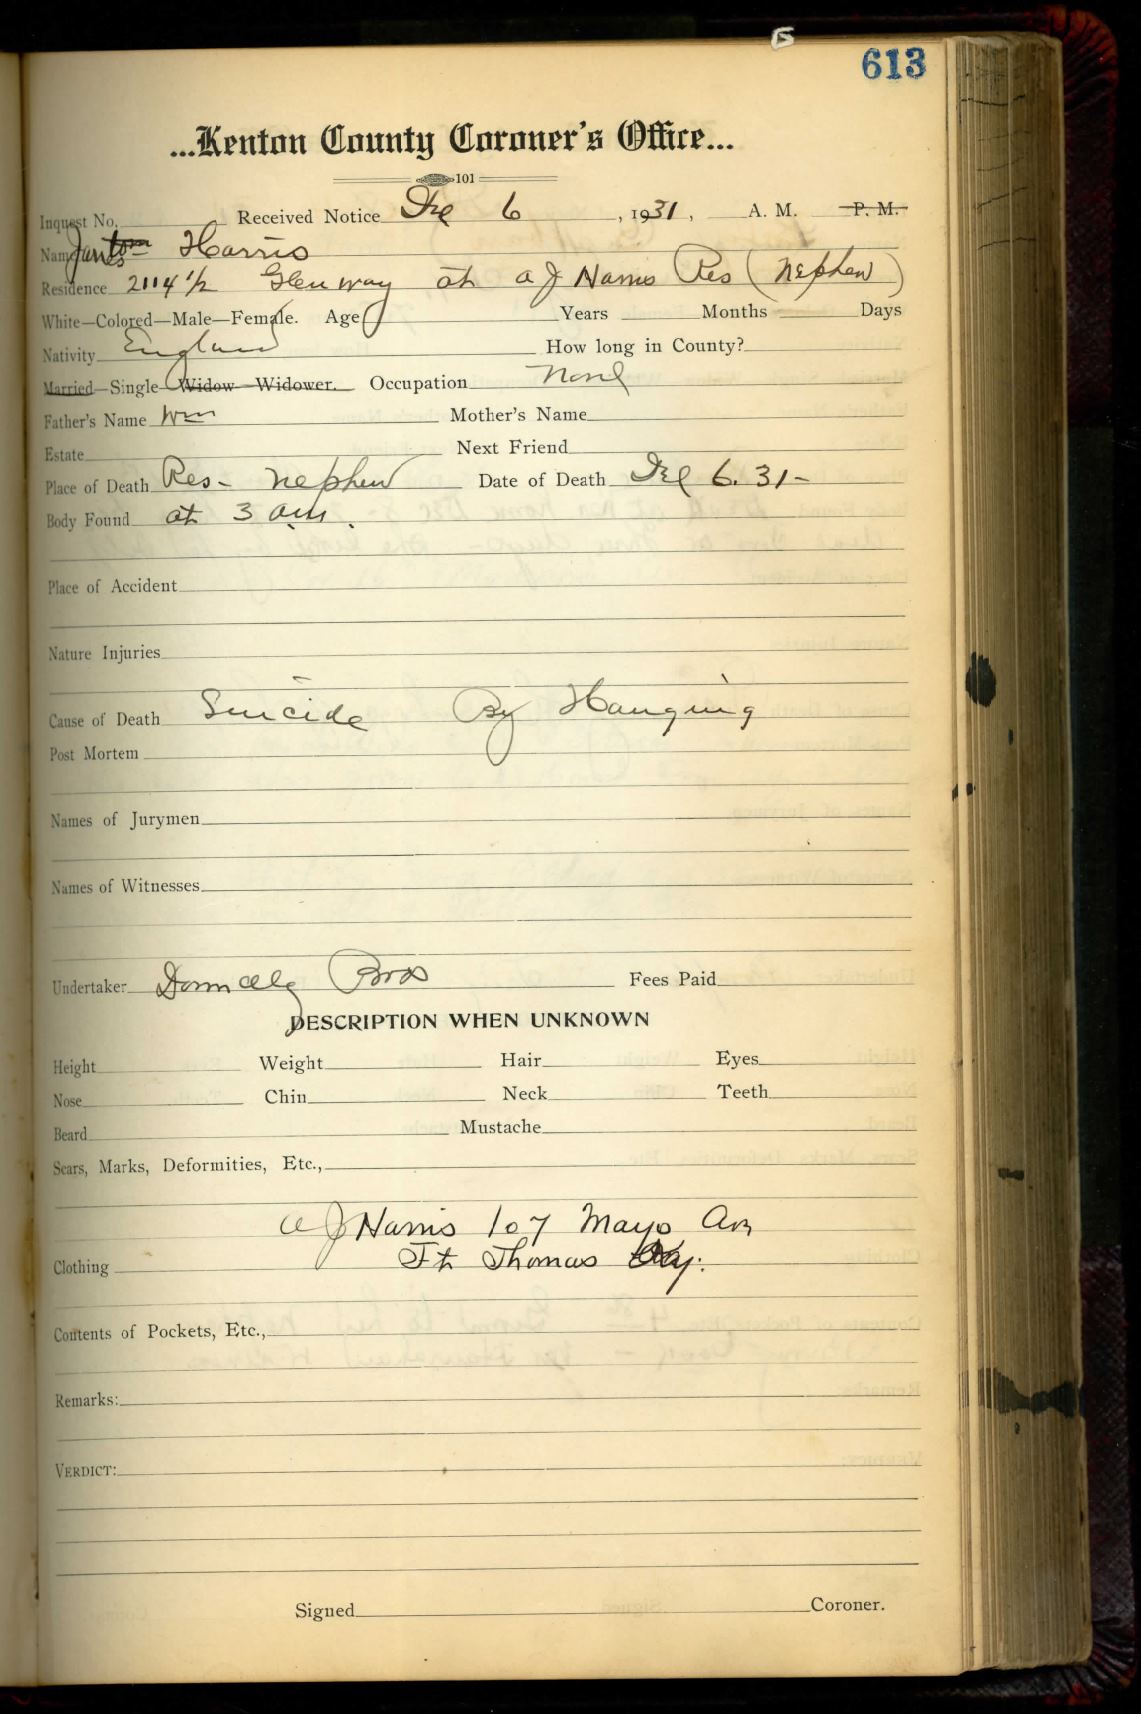 613
...Kenton County Coroner's Office...
101
Inquest No. Received Notice Dec 6, 1931, A. M. P. M.
Name James Harris
Residence 2114 1/2 Glenway at A J Harris Res (Nephew)
White—Colored—Male—Female. Age Years Months Days
Nativity England How long in County?
Married—Single—Widow—Widower. Occupation None
Father's Name Wm Mother's Name
Estate Next Friend
Place of Death Res- Nephew Date of Death Dec 6. 31-
Body Found at 3 am.
Place of Accident
Nature Injuries
Cause of Death Suicide By Hanging
Post Mortem
Names of Jurymen
Names of Witnesses
Undertaker Donnelly Bros Fees Paid
DESCRIPTION WHEN UNKNOWN
Height Weight Hair Eyes
Nose Chin Neck Teeth
Beard Mustache
Scars, Marks, Deformities, Etc.,
A J Harris 107 Mayo Ave
Clothing Ft Thomas Ky.
Contents of Pockets, Etc.,
Remarks:
VERDICT:
Signed Coroner.